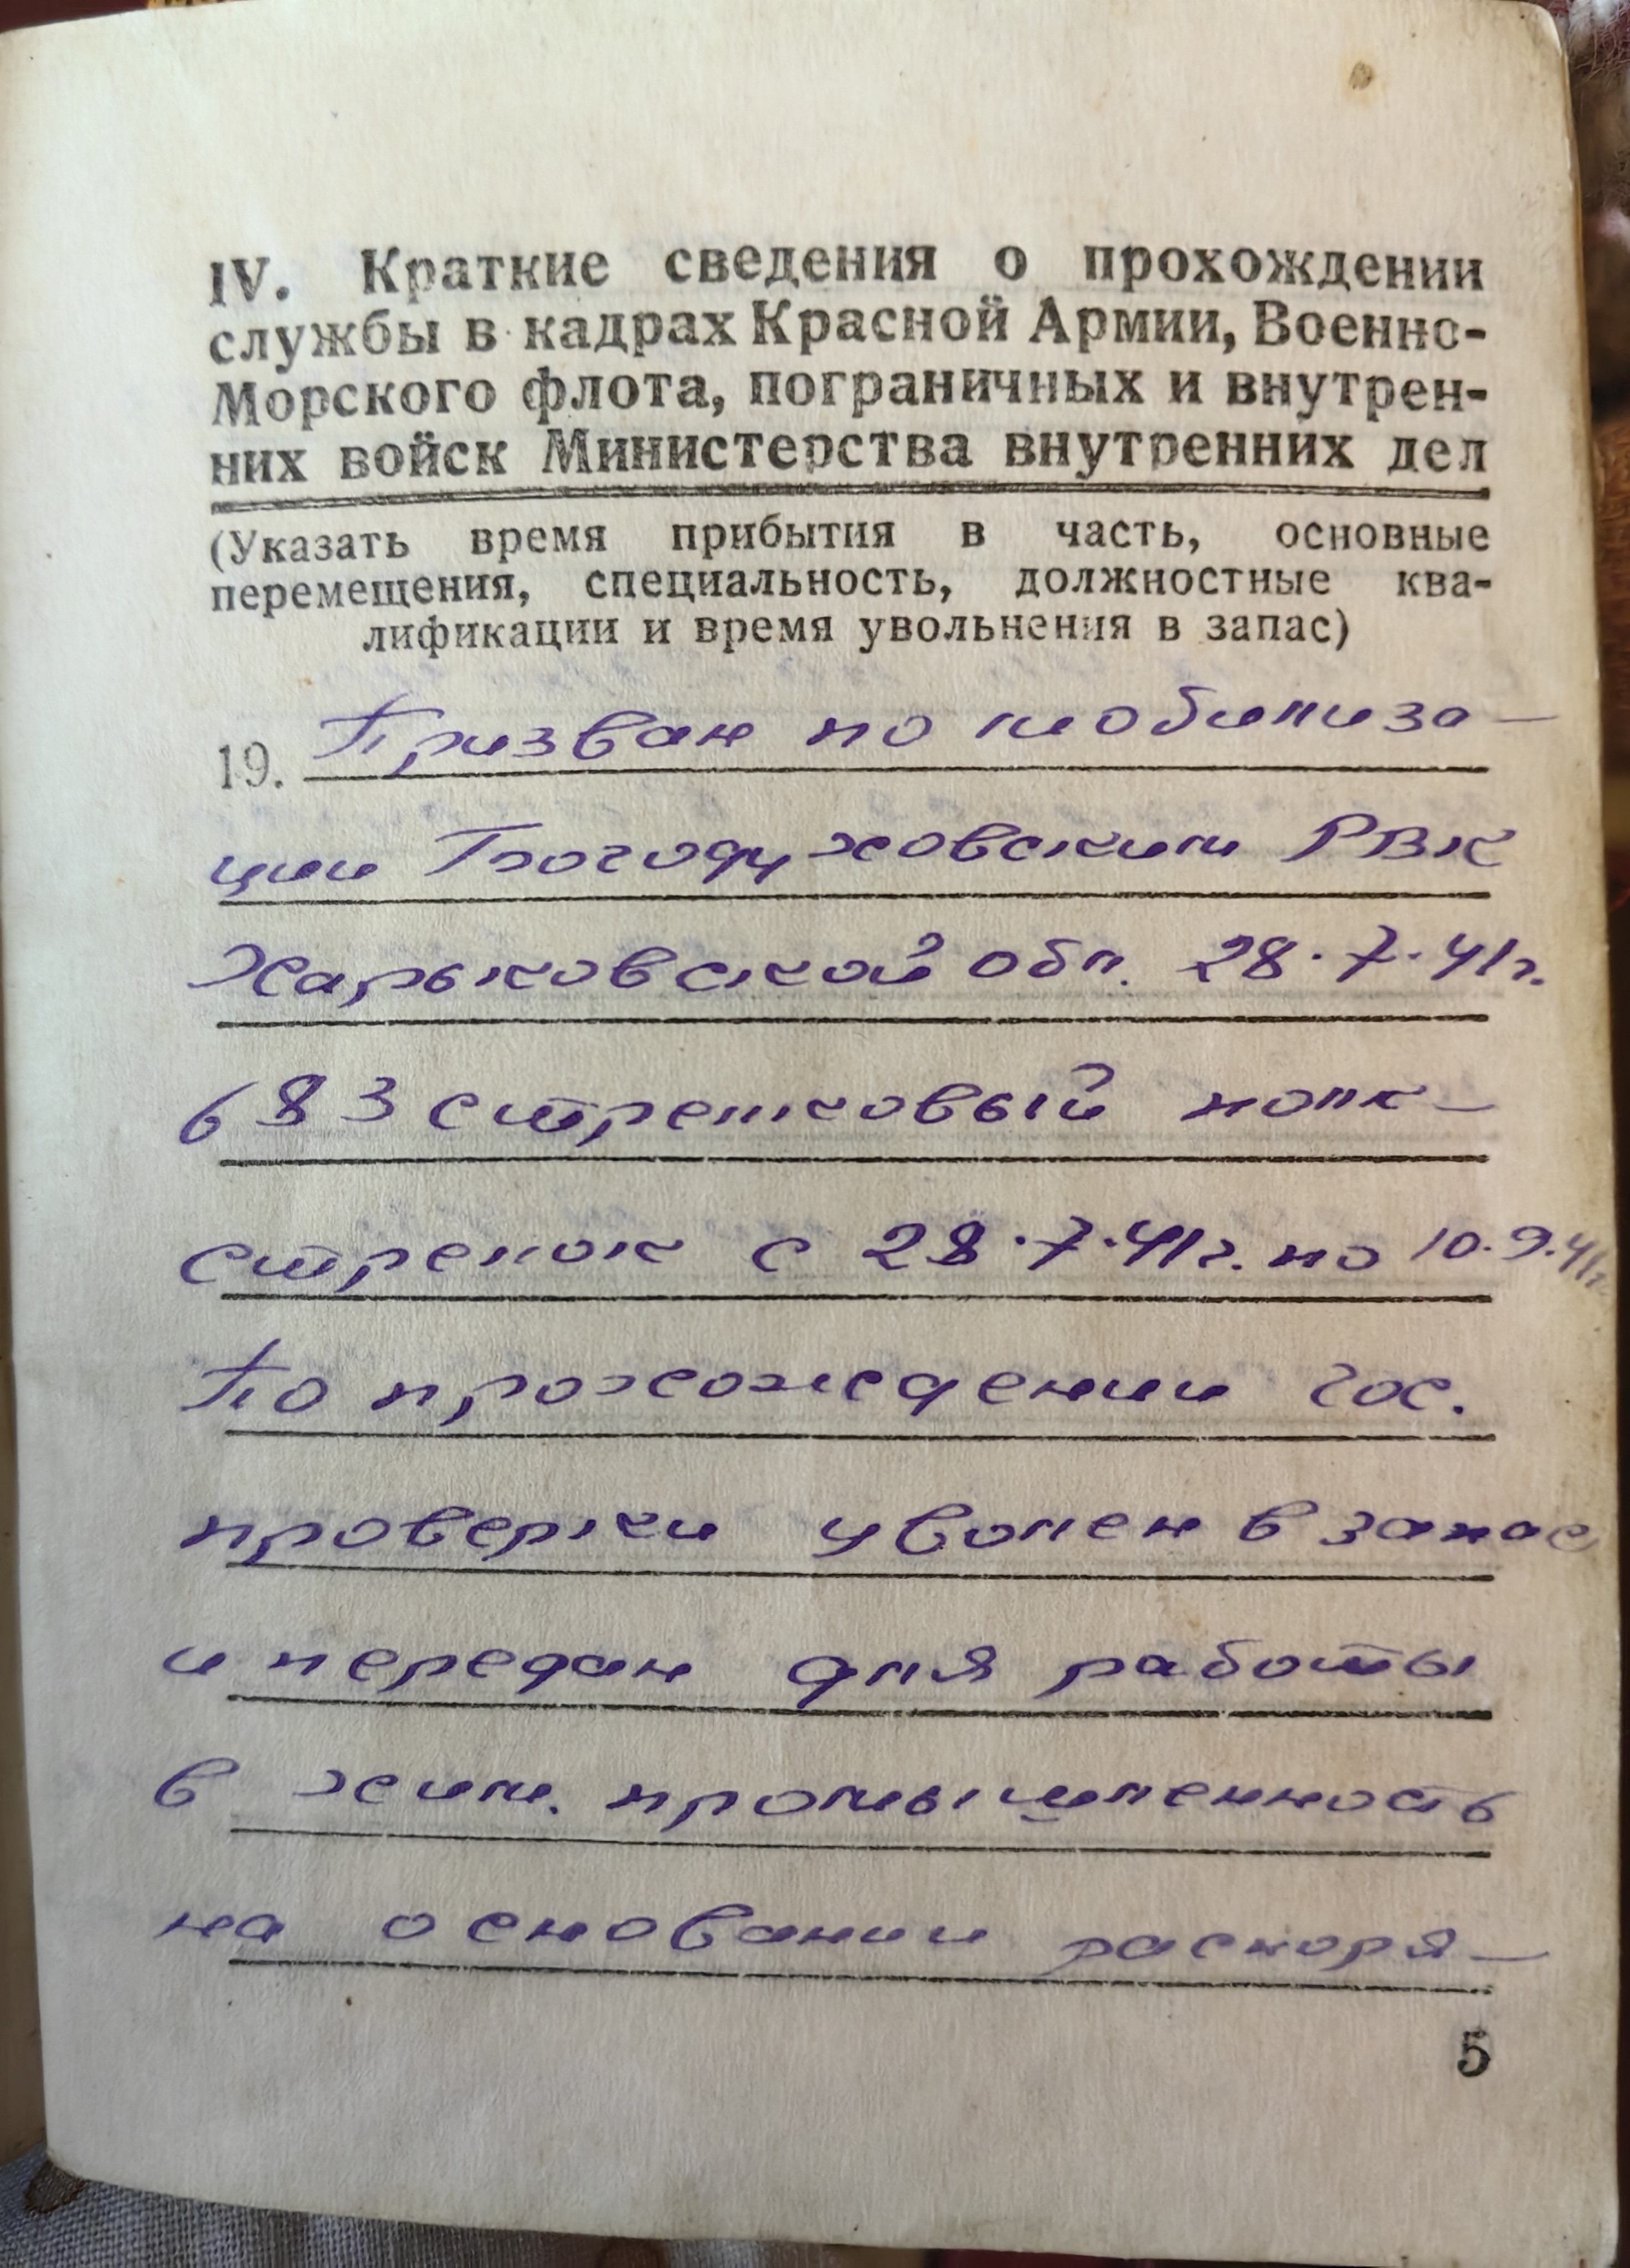 IV. Краткие сведения о прохождении
службы в кадрах Красной Армии, Военно-
Морского флота, пограничных и внутрен-
них войск Министерства внутренних дел
(Указать время прибытия в часть, основные
перемещения, специальность, должностные ква-
лификации и время увольнения в запас)
19. Призван по мобилиза-
ции Богодуховским РВК
Харьковской обл. 28.7.41г.
683 стрелковый полк -
стрелок с 28.7.41г. по 10.9.41г.
По прохождении гос.
проверки уволен в запас
и передан для работы
в хим. промышленность
на основании распоря-
5